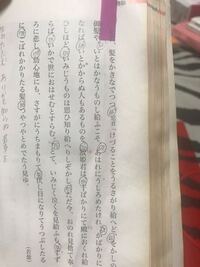 髪をかきなでつつ、「けづることをうるさがり給へど、をかしの
御髪や。いとはかなうものし給ふこそ、あはれにうしろめたけれ。かばかりに
なれば、いとかからぬ人もあるものを。故姫君は、十ばかりにて殿におくれ給
ひしほど、いみじうものは思ひ知り給へりしぞかし。ただ今、おのれ見捨て奉
らば、いかで世におはせむとすらむ。」とて、いみじく泣くを見給ふも、すず
ろに悲し。幼心地にも、さすがにうちまもりて、伏し目になりてうつぶしたる
に、こぼれかかりたる髪、つやつやとめでたう見ゆ。
ありかも知らぬ若草を